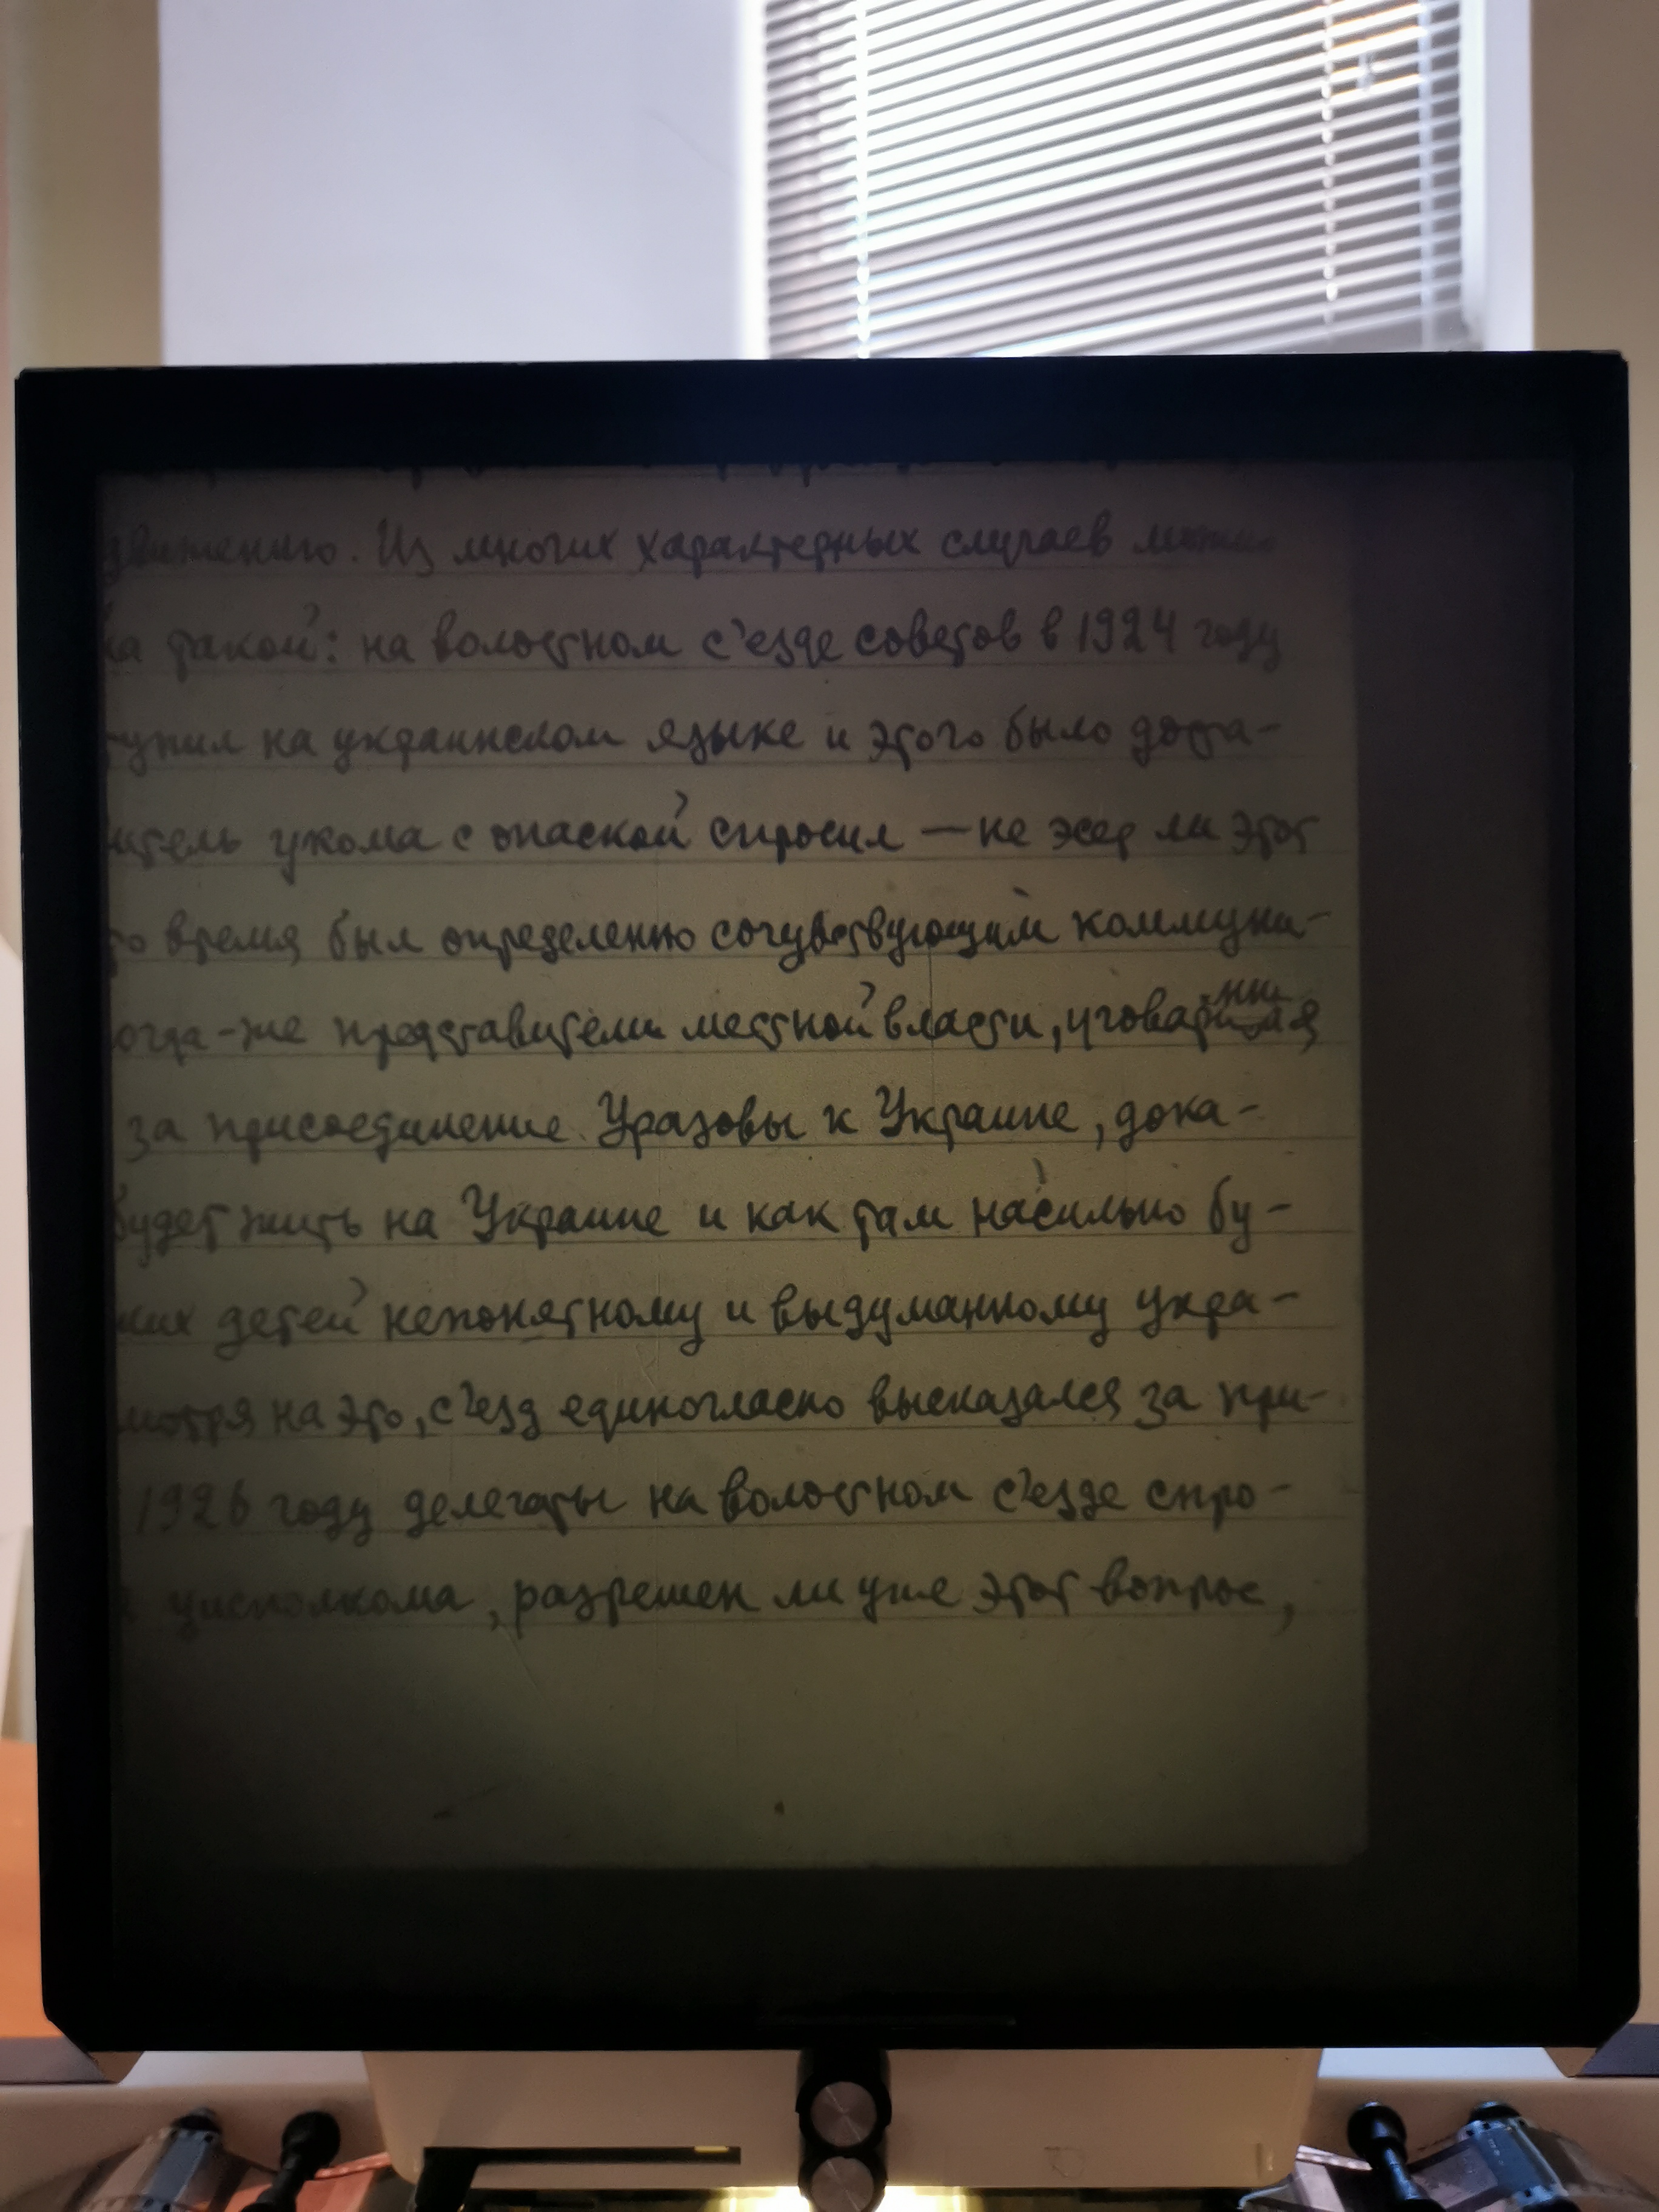 движению. Из многих характерных случаев
на такой: на волостном с'езде советов в 1924 году
тупил на украинском языке и этого было доста-
итель укома с опаской спросил — не эсер ли этот
то время был определенно сочувствующим коммуни-
огда-же представители местной власти, уговар
за присоединение Уразовы к Украине, дока-
будет жить на Украине и как там насильно бу-
ких детей непонятному и выдуманному укра-
мотря на это, с'езд единогласно высказался за при-
1926 году делегаты на волостном с'езде спро-
уисполкома, разрешен ли уже этот вопрос,